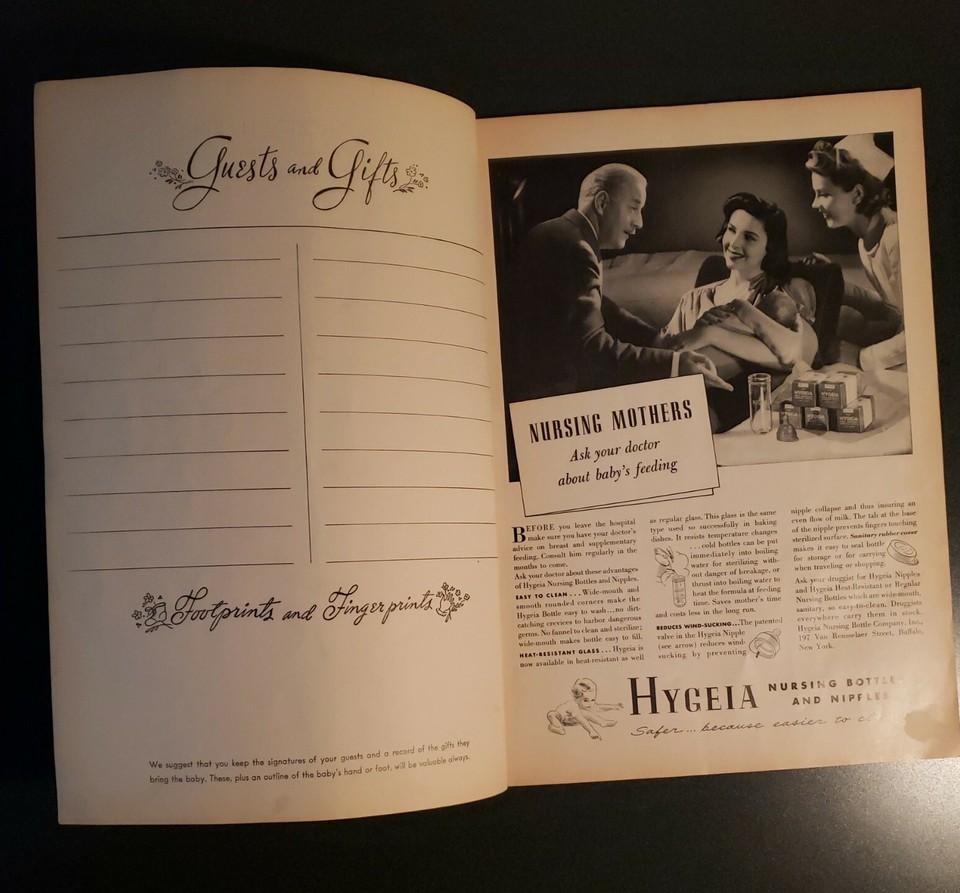 Guests and Gifts
Footprints and Fingerprints
We suggest that you keep the signatures of your guests and a record of the gifts they
bring the baby. These, plus an outline of the baby's hand or foot, will be valuable always.
HYGEIA
HYGEIA
HYGEIA
HYGEIA
NURSING MOTHERS
Ask your doctor
about baby's feeding
BEFORE you leave the hospital
make sure you have your doctor's
advice on breast and supplementary
feeding. Consult him regularly in the
months to come.
Ask your doctor about these advantages
of Hygeia Nursing Bottles and Nipples.
EASY TO CLEAN... Wide-mouth and
smooth rounded corners make the
Hygeia Bottle easy to wash...no dirt-
catching crevices to harbor dangerous
germs. No funnel to clean and sterilize;
wide-mouth makes bottle easy to fill.
HEAT-RESISTANT GLASS... Hygeia is
now available in heat-resistant as well
as regular glass. This glass is the same
type used so successfully in baking
dishes. It resists temperature changes
...cold bottles can be put
immediately into boiling
water for sterilizing with-
out danger of breakage, or
thrust into boiling water to
heat the formula at feeding
time. Saves mother's time
and costs less in the long run.
REDUCES WIND-SUCKING...The patented
valve in the Hygeia Nipple
(see arrow) reduces wind-
sucking by preventing
nipple collapse and thus insuring an
even flow of milk. The tab at the base
of the nipple prevents fingers touching
sterilized surface. Sanitary rubber cover
makes it easy to seal bottle
for storage or for carrying
when traveling or shopping.
Ask your druggist for Hygeia Nipples
and Hygeia Heat-Resistant or Regular
Nursing Bottles which are wide-mouth,
sanitary, so easy-to-clean. Druggists
everywhere carry them in stock.
Hygeia Nursing Bottle Company, Inc.,
197 Van Rensselaer Street, Buffalo,
New York.
HYGEIA NURSING BOTTLE
AND NIPPLES
Safer... because easier to